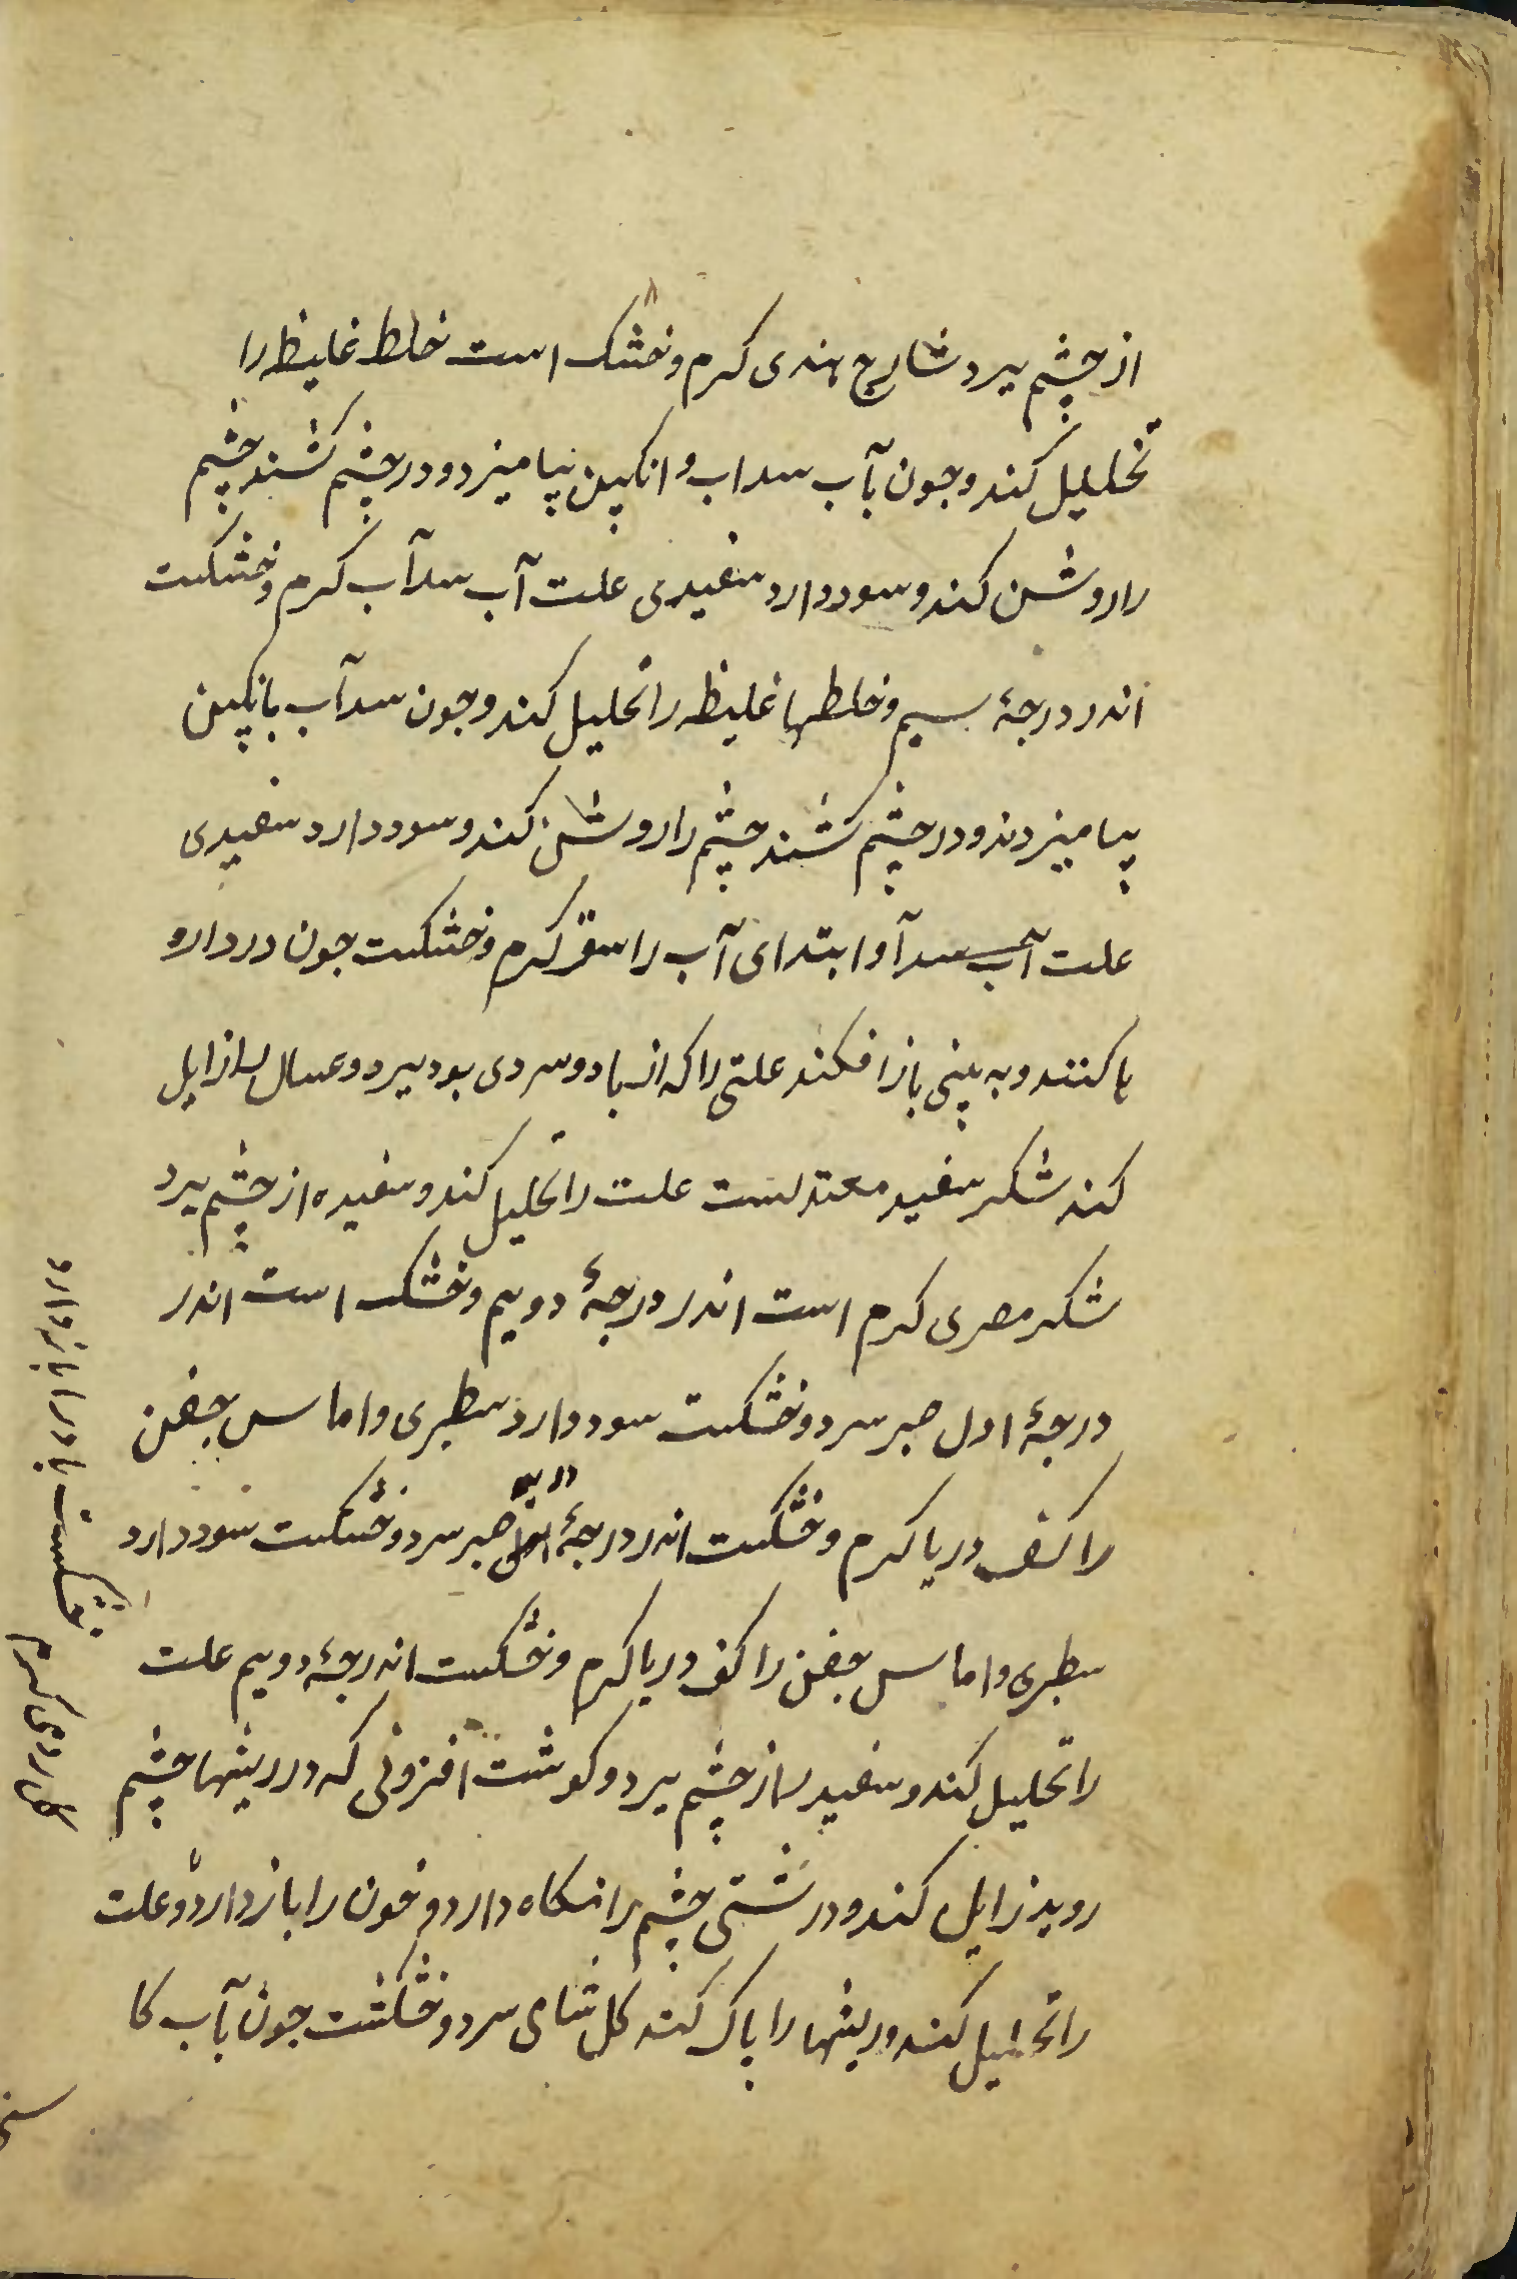 از چشم ببرد شارج هندی کرم و خشک است خلط غلیظ را
تحلیل کند و جون بآب سداب و انکپین بیامیزد و در چشم کشند چشم
را روشن کند و سود دارد سفیدی علت آب سدآب کرم و خشکست
اندر درجهٔ سیم و خلطها غلیظ را تحلیل کند و جون سدآب بانکپین
بیامیزدند و در چشم کشند چشم را روشن کند و سود دارد سفیدی
علت آب سدآ و ابتدای آب را سقر کرم و خشکست جون در دارو
ها کنند و به بینی باز افکند علتی را که از باد و سردی بود ببرد و زایل
کند شکر سفید معتدلست علت را تحلیل کند و سفیده از چشم ببرد
شکر مصری کرم است اندر درجهٔ دویم و خشک است اندر
درجهٔ اول صبر سرد و خشکست سود دارد سطبری و اماس جفن
را کف دریا کرم و خشکست اندر درجهٔ صبر سرد و خشکست سود دارد
سطبری و اماس جفن را کف دریا کرم و خشکست اندرجهٔ دویم علت
را تحلیل کند و سفید از چشم ببرد و کوشت افزونی که در ریشها چشم
روید زایل کند و درشتی چشم را نکاه دارد و خون را باز دارد و علت
را تحلیل کند و ریشها را پاک کند کل شامی سرد و خشکست جون بآب کا
کل ارمنی کرم خشکست